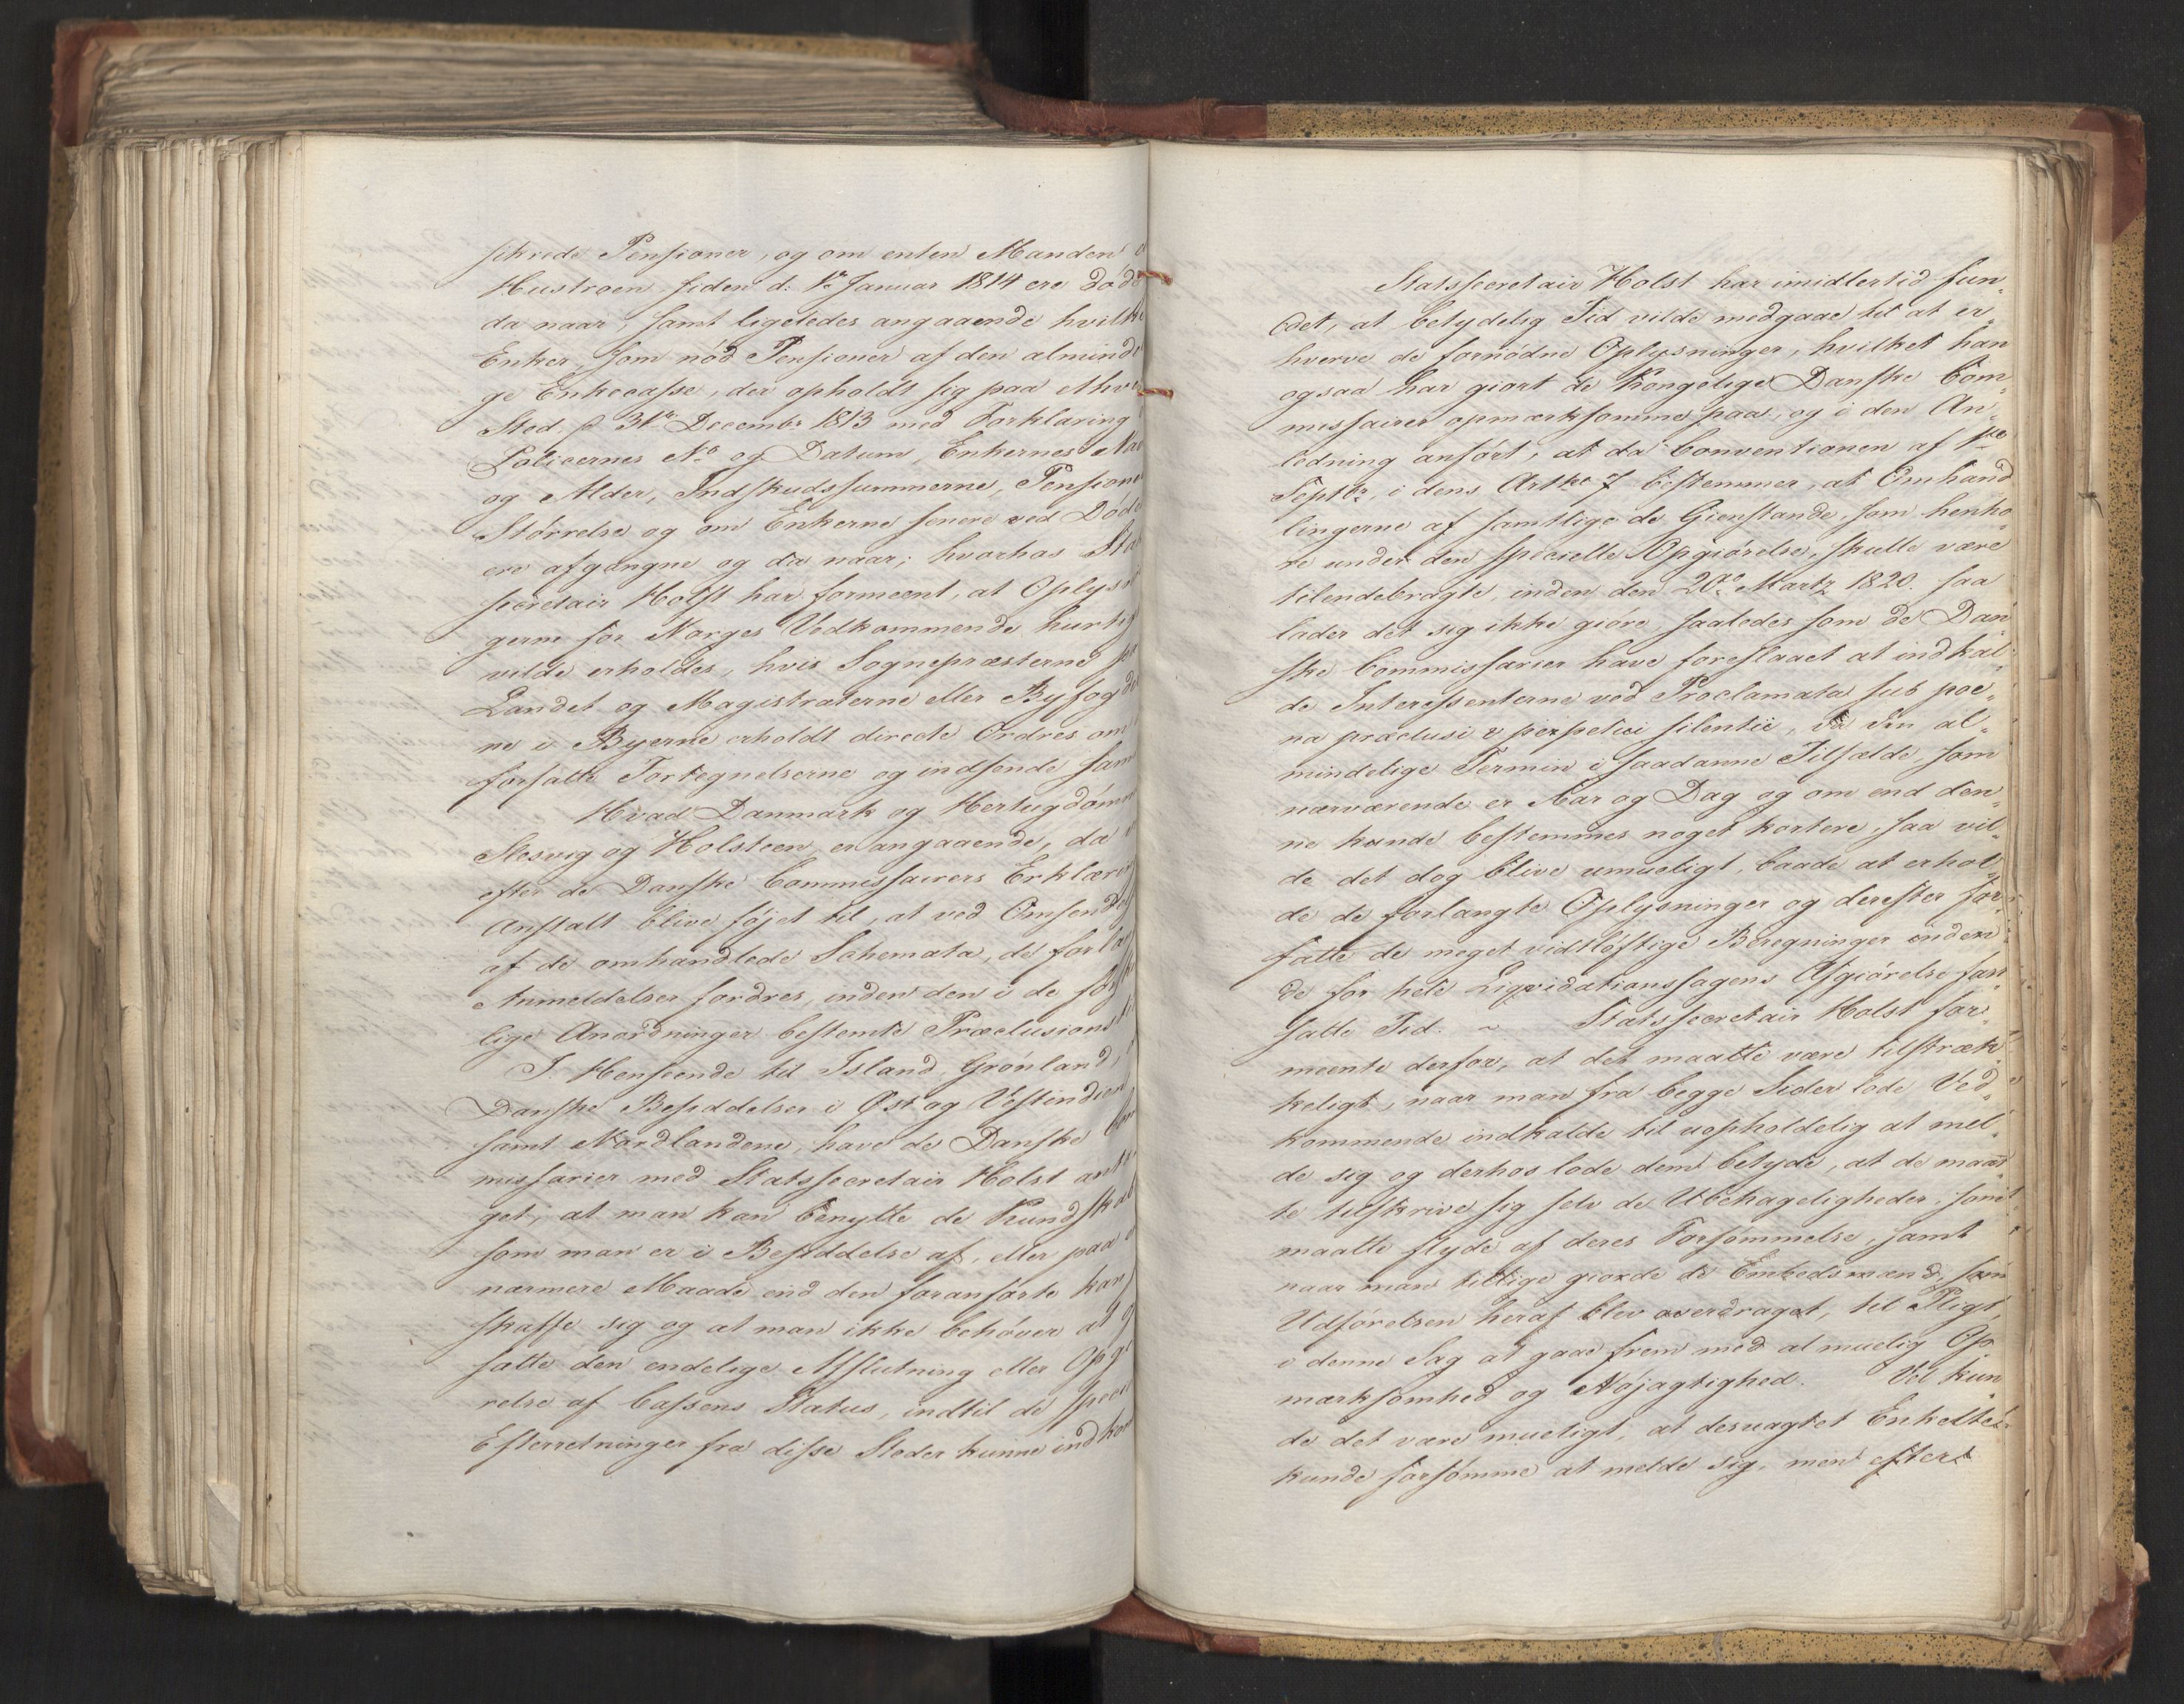 sikrede Pensioner, og om enten Manden e
Hustroen siden d: 1ste Januar 1814 ere døde
da naar, samt ligeledes angaaende hvilke
Enker, som nød Pensioner af den alminde
ge Enkecasse, der opholdt sig paa ethver
Sted p 31te Decembr 1813 med Forklaring
Policernes No og Datum, Enkernes Nav
og Alder, Indskudssummerne, Pensioner
Størrelse og om Enkerne senere ved Døde
ere afgangne og da naar; hvorhos Sta
secretair Holst har formeent, at Oplysni
gerne for Norges Vedkommende hurtig
vilde erholdes, hvis Sognepræsterne
Landet og Magistraterne eller Byfogde
ne i Byerne erholdt directe Ordres om
forfatte Fortegnelserne og indsende sam
Hvad Danmark og Hertugdømm
Slesvig og Holsteen er angaaende, da
efter de Danske Commissairers Erklæring
Anstalt blive føjet til, at ved Omsendel
af de omhandlede Schemata, de forlan
Anmeldelser fordres, inden den i de
lige Anordninger bestemte Præclusions
I Henseende til Island, Grønland,
Danske Besiddelser i Øst og Vestindien
samt Nordlandene, have de Danske Com
missarier med Statssecretair Holst anta
get, at man kan benytte de Kundskab
som man er i Besiddelse af, eller paa
nærmere Maade end den foranførte kan
skaffe sig og at man ikke behøver at
sætte den endelige Afslutning eller Opgi
relse af Cassens Status, indtil de speci
Efterretninger fra disse Steder kunne indkom
Statssecretair Holst har imidlertid fun¬
det, at betydelig Tid vilde medgaae til at er¬
hverve de fornødne Oplysninger, hvilket han
ogsaa har giort de Kongelige Danske Com¬
missairer opmærksomme paa, og i den An¬
ledning anført, at da Conventionen af 1ste
Septbr, i dens Artkr 7 bestemmer, at Omhand
lingerne af samtlige de Gienstande, som henhø¬
re under den specielle Opgiørelse, skulle være
tilendebragte, inden den 20de Martz 1820. saa
lader det sig ikke giøre, saaledes som de Dan¬
ske Commissarier have foreslaaet at indkal¬
de Interessenterne ved Proclamata sub poe¬
na præclusi & perpetui silentii, da den al¬
mindelige Termin i saadanne Tilfælde, som
nærværende er Aar og Dag og om end den¬
ne kunde bestemmes noget kortere, saa vil¬
de det dog blive umueligt, baade at erhol¬
de de forlangte Oplysninger og derefter for¬
fatte de meget vidtløftige Beregninger inden¬
de for hele Liqvidationssagens Afgiørelse fast
satte Tid. ~ Statssecretair Holst for¬
meente derfor, at det maatte være tilstræk¬
keligt, naar man fra begge Sider lode Ved¬
kommende indkalde til uopholdelig at mel¬
de sig og derhos lode dem betyde, at de maat
te tilskrive sig selv de Ubehageligheder, som
maatte flyde af deres Forsømmelse, samt
naar man tillige giorde de Embedsmænd, som
Udførelsen heraf blev overdraget, til Pligt,
i denne Sag at gaae frem med al muelig Op¬
mærksomhed og Nøjagtighed. Vel kun¬
de det være mueligt, at desuagtet Enkelte
kunde forsømme at melde sig, men efter